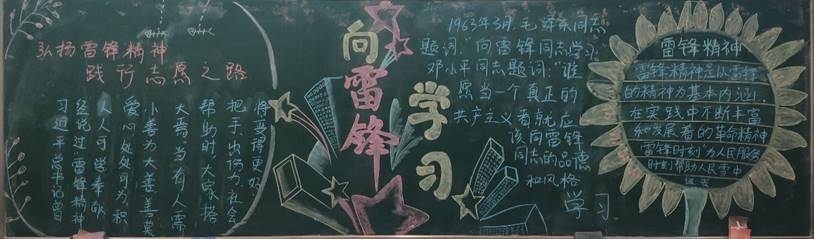 弘扬雷锋精神
践行志愿之路
习近平总书记曾
经说过雷锋精神
人人可学奉献
爱心处处可为积
小善为大善善莫
大焉当有人需
帮助时大家搭
把手、出份力社会
将变得更好
向雷锋
学习
1963年3月,毛泽东同志
题词:"向雷锋同志学习
邓小平同志题词:"谁
愿当一个真正的
共产主义者就应
该向雷锋
同志的品德
和风格
学习
雷锋精神
雷锋精神是以雷锋
的精神为基本内涵,
在实践中不断丰富
和发展着的革命精神
雷锋时刻为人民服务
时刻帮助人民雪中
送炭